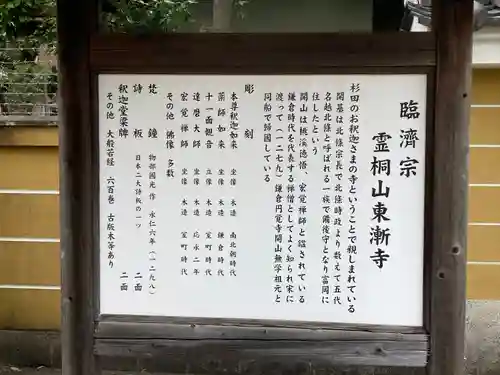 臨濟宗
霊桐山東漸寺
杉田のお釈迦さまの寺ということで親しまれている
開基は北條宗長で北條時政より数えて五代
名越北條と呼ばれる一族で備後守となり富岡に
住したという
開山は桃溪徳悟、宏覚禅師と諡されている
鎌倉時代を代表する禅僧としてよく知られ宋に
渡って(一二七九)鎌倉円覚寺開山無学祖元と
同船で帰国している
彫刻
本尊釈迦如来 坐像 木造 南北朝時代
薬師如来 坐像 木造 鎌倉時代
十一面観音 立像 木造 室町時代
達磨大師 坐像 木造 応永二年
宏覚禅師 坐像 木造 室町時代
その他 佛像 多数
梵鐘 物部國光作 永仁六年(一二九八)
詩板 日本二大詩板の一つ 二面
釈迦堂梁牌 二面
その他 大般若経 六百巻 古版木等あり